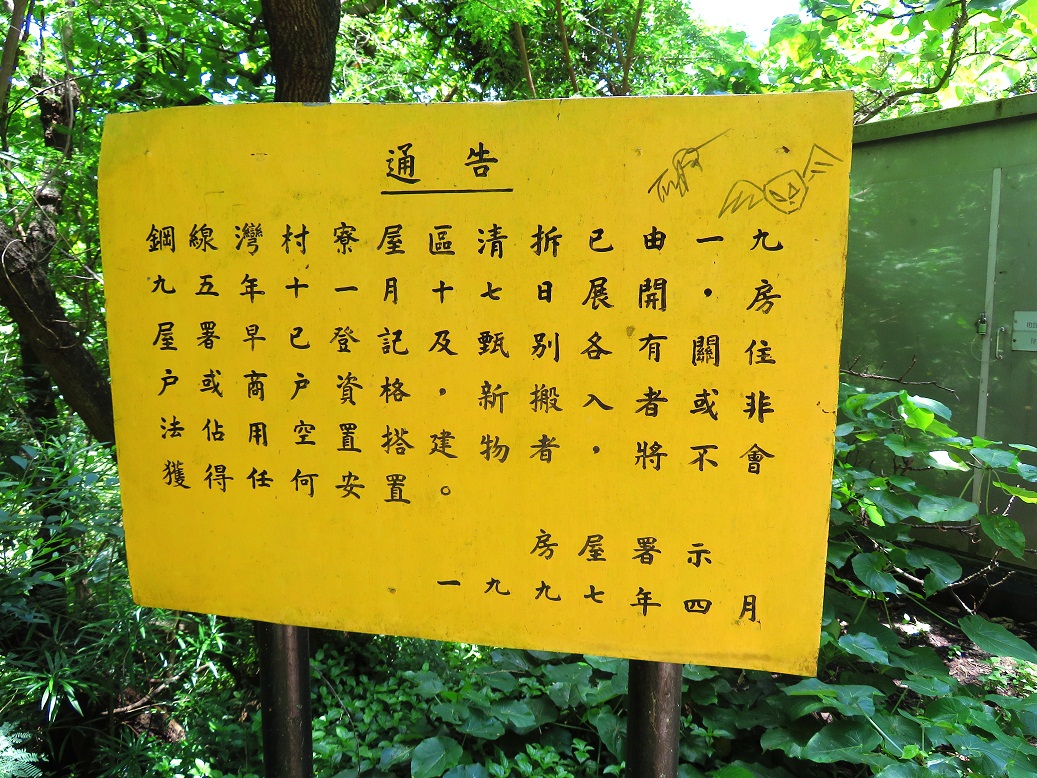 通告
鋼線灣村寮屋區清拆已由一九
九五年十一月十七日展開・房
屋署早已登記及甄別各有關住
戶或商戶資格，新搬入者或非
法佔用空置搭建物者，將不會
獲得任何安置。
房屋署示
一九九七年四月